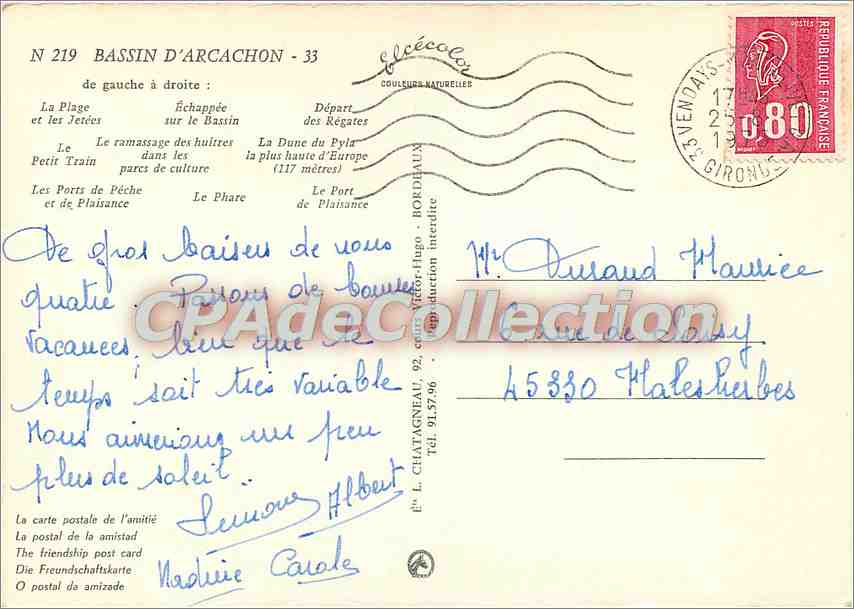 N 219 BASSIN D'ARCACHON - 33
de gauche à droite :
La Plage et les Jetées
Échappée sur le Bassin
Départ des Régates
Le Petit Train
Le ramassage des huîtres dans les parcs de culture
La Dune du Pyla la plus haute d'Europe (117 mètres)
Les Ports de Pêche et de Plaisance
Le Phare
Le Port de Plaisance
elcécolor
COULEURS NATURELLES
33 VENDAYS-
GIRONDE
17
25
19
POSTES
RÉPUBLIQUE FRANÇAISE
0,80
De gros baisers de nous
quatre. Passons de bonnes
vacances, bien que le
temps soit très variable
Nous aimerions un peu
plus de soleil..
Simone Albert
Nadine Carole
Mr Durand Maurice
6 rue de
45330 Malesherbes
Éts L. CHATAGNEAU, 92, cours Victor-Hugo - BORDEAUX
Tél. 91.57.96 - Reproduction interdite
La carte postale de l'amitié
La postal de la amistad
The friendship post card
Die Freundschaftskarte
O postal da amizade
CPAdeCollection